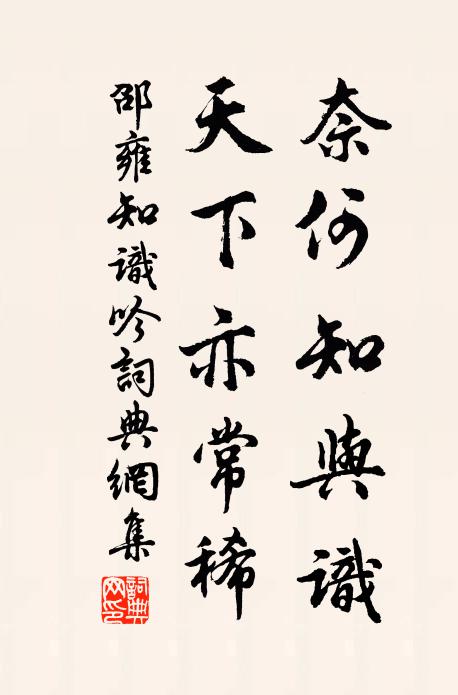 奈何知與識
天下亦常稀
邵雍知識吟詞典網集
詞典網印